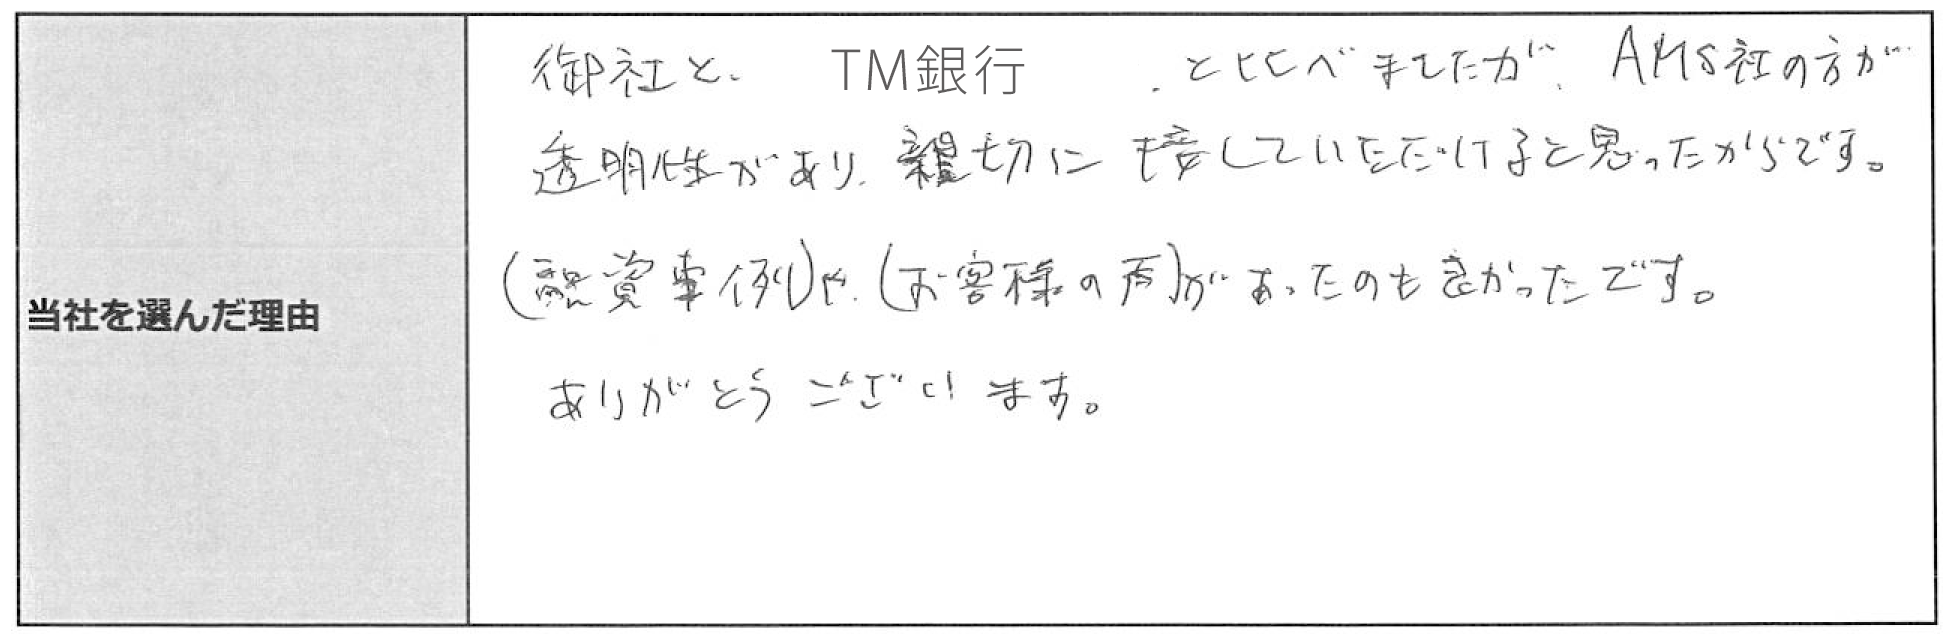 当社を選んだ理由
御社と、TM銀行、と比べましたが、AMS社の方が
透明性があり、親切に接していただけると思ったからです。
(融資事例)や、(お客様の声)があったのも良かったです。
ありがとうございます。